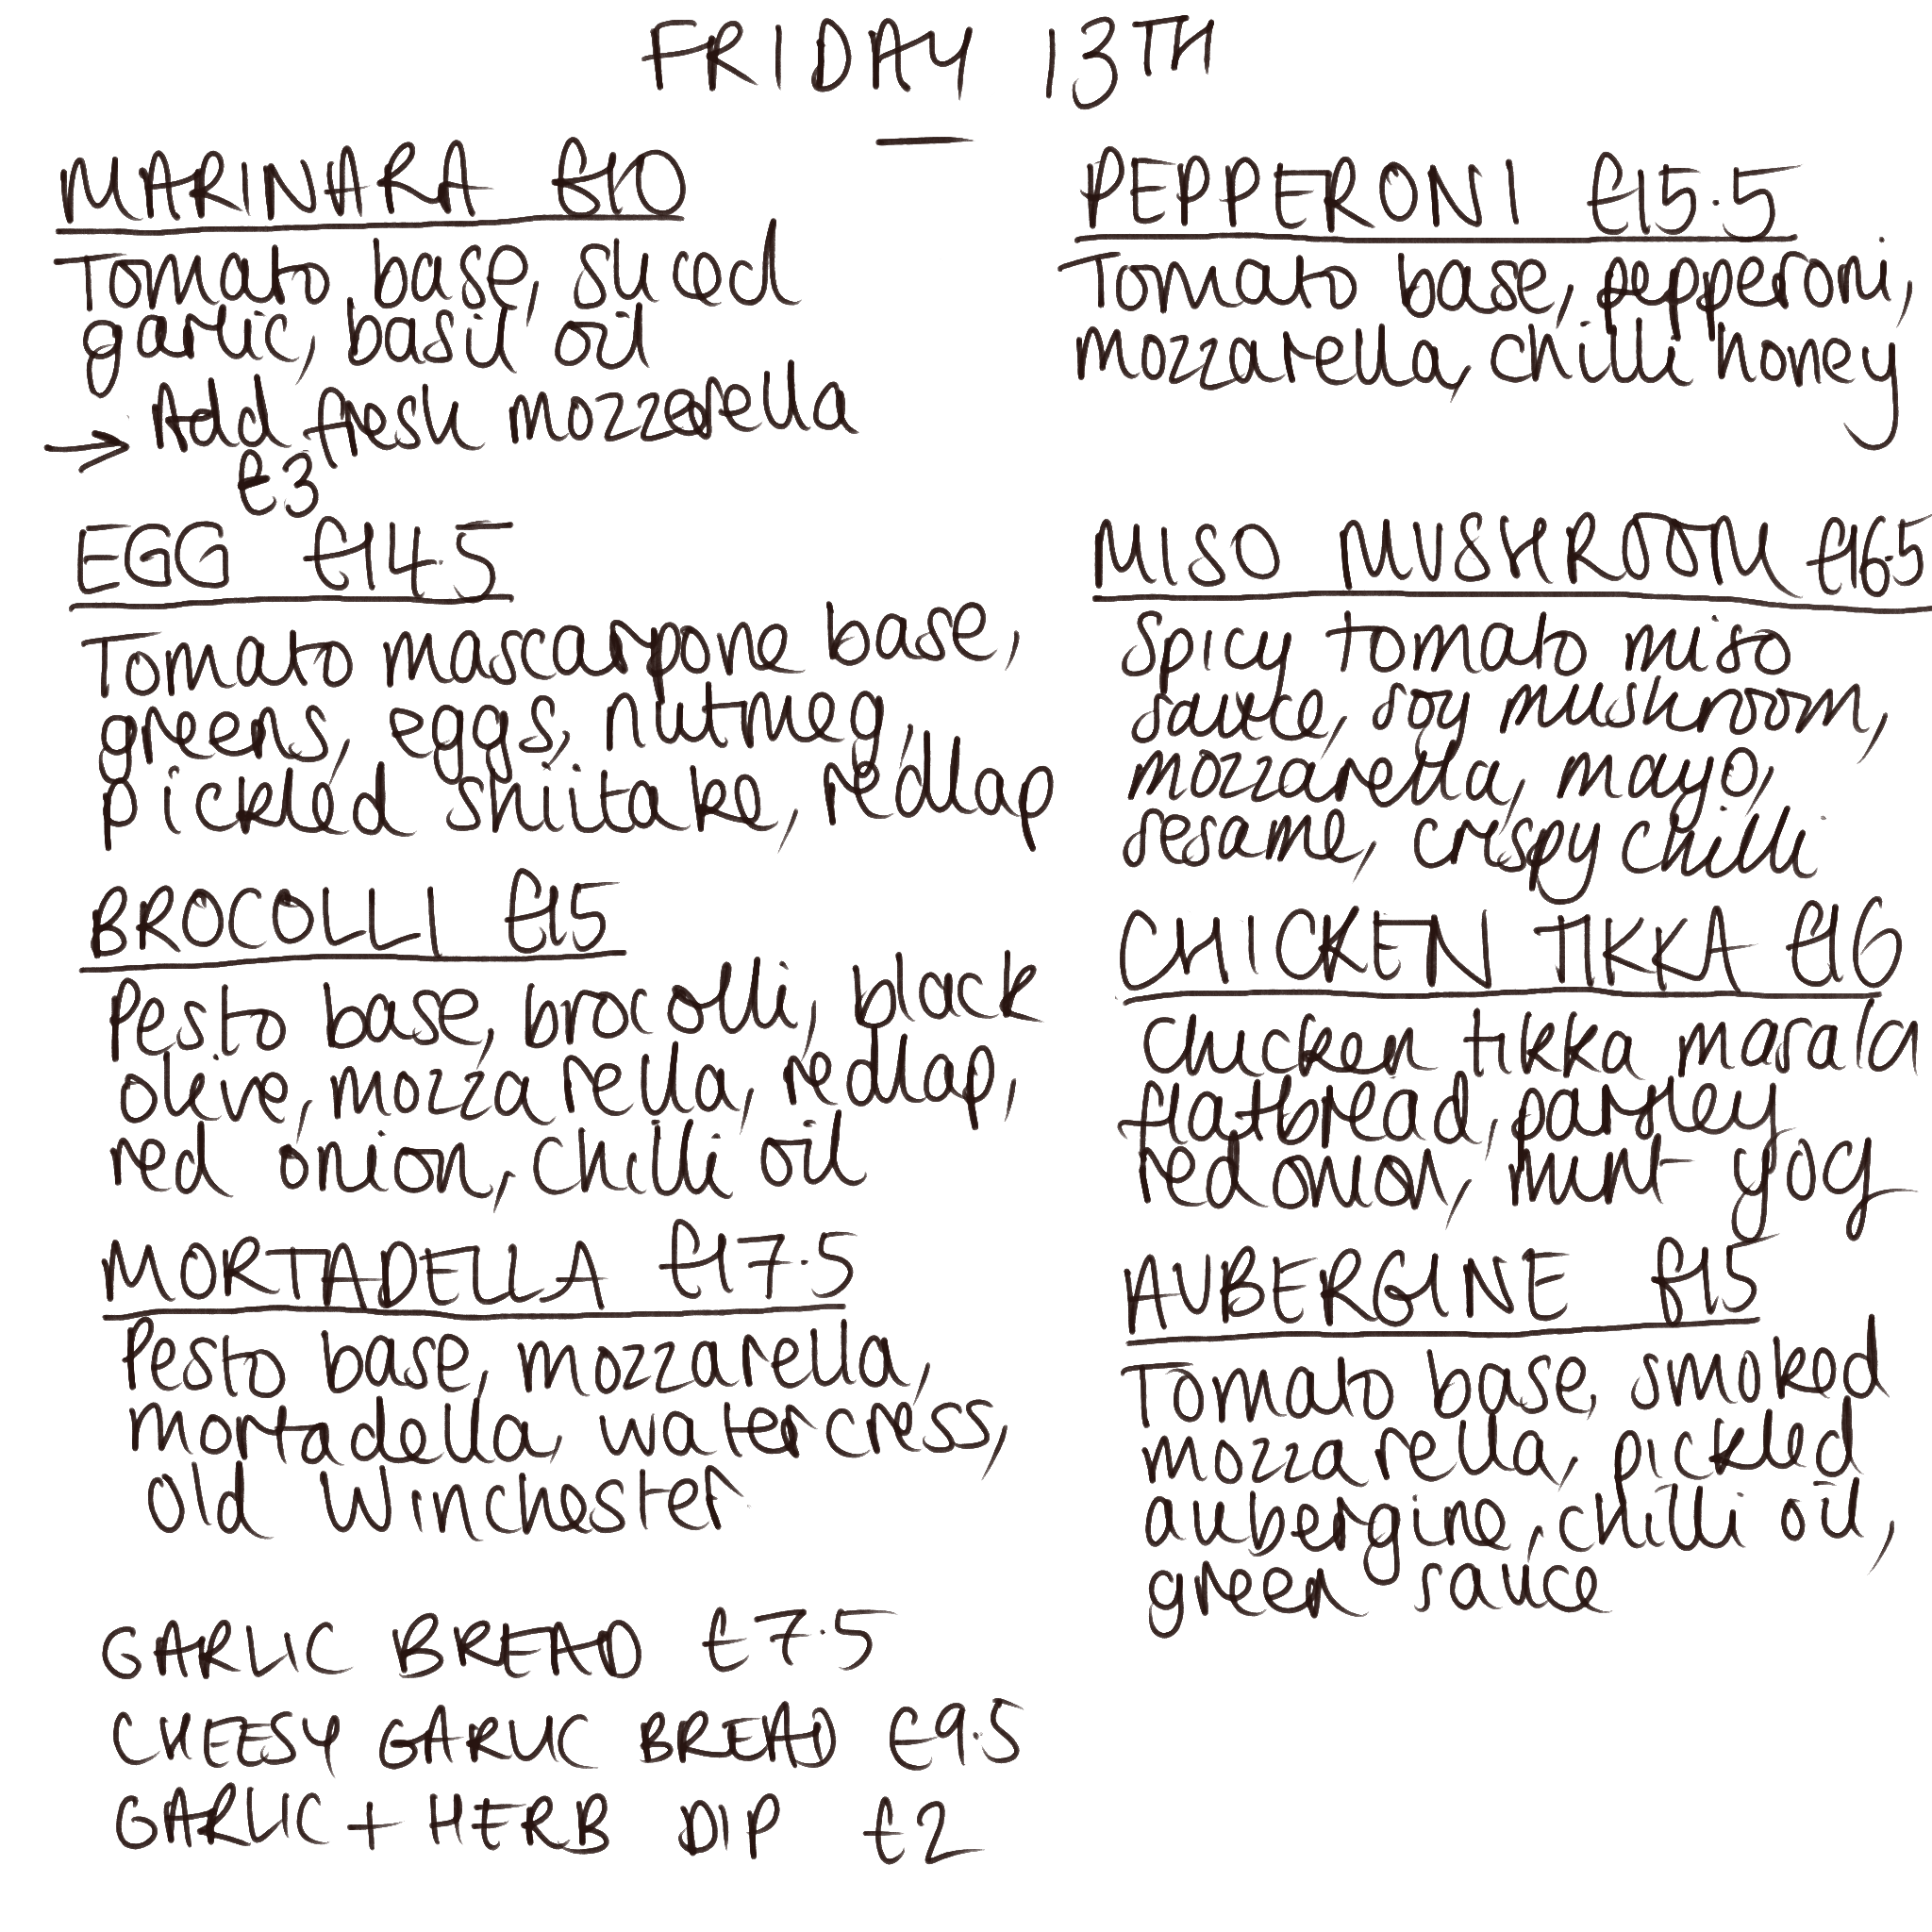 FRIDAY 13TH
MARINARA £10
Tomato base, sliced
garlic, basil oil
→ Add fresh mozzarella
£3
EGG £14.5
Tomato mascarpone base,
greens, eggs, nutmeg,
pickled shiitake, redlap
BROCOLLI £15
Pesto base, brocolli, black
olive, mozzarella, redlap,
red onion, chilli oil
MORTADELLA £17.5
Pesto base, mozzarella,
mortadella, watercress,
Old Winchester
GARLIC BREAD £7.5
CHEESY GARLIC BREAD £9.5
GARLIC + HERB DIP £2
PEPPERONI £15.5
Tomato base, pepperoni,
mozzarella, chilli honey
MISO MUSHROOM £16.5
Spicy tomato miso
sauce, soy mushroom,
mozzarella, mayo,
sesame, crispy chilli
CHICKEN TIKKA £16
Chicken tikka masala
flatbread, parsley
red onion, mint yog
AUBERGINE £15
Tomato base, smoked
mozzarella, pickled
aubergine, chilli oil,
green sauce